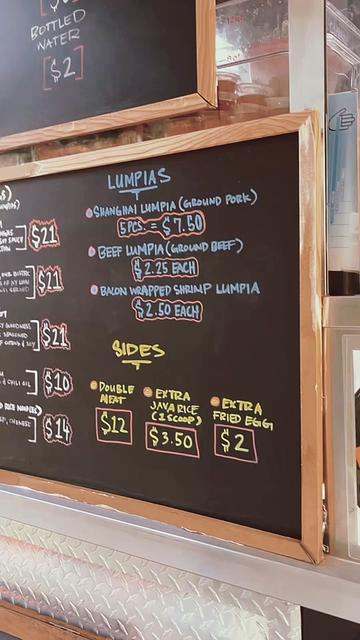 BOTTLED
WATER
$2
$21
$21
$21
& CHILI OIL
$10
$14
LUMPIAS
SHANGHAI LUMPIA (GROUND PORK)
5 PCS. = $7.50
BEEF LUMPIA (GROUND BEEF)
$2.25 EACH
BACON WRAPPED SHRIMP LUMPIA
$2.50 EACH
SIDES
DOUBLE
MEAT
$12
EXTRA
JAVA RICE
(2 SCOOP)
$3.50
EXTRA
FRIED EGG
$2